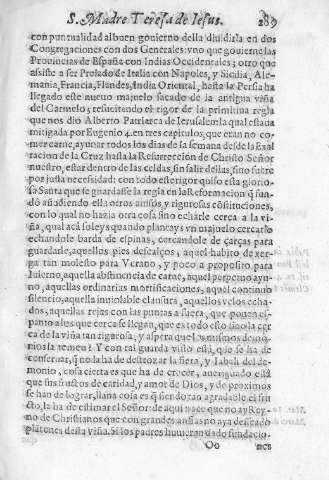 S. Madre Teresa de Iesus. 289
con puntualidad al buen gouierno della diuidirla en dos
Congregaciones con dos Generales: vno que gouierne las
Prouincias de España con Indias Occidentales; otro que
assiste a ser Prelado de Italia con Napoles, y Sicilia, Ale-
mania, Francia, Flandes, India Oriental, hasta la Persia ha
llegado este nueuo majuelo sacado de la antigua viña
del Carmelo; resucitendo el rigor de la primitiua regla
que nos dio Alberto Patriarca de Ierusalem la qual estaua
mitigada por Eugenio 4. en tres capitulos, que eran no co-
mer carne, ayunar todos los dias de la semana desde la Exal
tacion de la Cruz hasta la Resurreccion de Christo Señor
nuestro, estar dentro de las celdas, sin salir dellas, sino fuere
por justa necessidad: con todo este rigor quiso esta glorio-
sa Santa que se guardasse la regla en la Reformacion q̃ fun
dò añadiendo ella otros auisos, y rigurosas cōstituciones,
con lo qual no hazia otra cosa sino echarle cerca a la vi-
ña, qual acà soleys quando plantays vn majuelo cercarlo
echandole barda de espinas, cercandole de çarças para
guardarle, aquellos pies descalços, aquel habito de xer-
ga tan molesto para Verano, y poco a proposito para
Iuierno, aquella abstinencia de carne, aquel perpetuo ayu-
no, aquellas ordinarias mortificaciones, aquel continuo
silencio, aquella inuiolable clausura, aquellos velos echa-
dos, aquellas rejas con las puntas a fuera, que ponen es-
panto a los que cerca se llegan, que es todo esto sino la cer
ca de la viña tan rigurosa, y aspera que los mismos demo-
nios la temen? Y con tal guarda visto està, que se ha de
conseruar, q̃ no la ha de destrozar la fiera, y Iabali del de-
monio, cosa cierta es que ha de crecer, aueriguado està
que sus frutos de caridad, y amor de Dios, y de proximos
se han de lograr, llana cosa es q̃ siendo tan agradable el fru
cto, la ha de estimar el Señor: de aqui nace que no ay Rey-
no de Christianos que con grandes ansias no aya deseado
plātones desta viña. Si los padres huuieran dado fundacio-
Oo nes